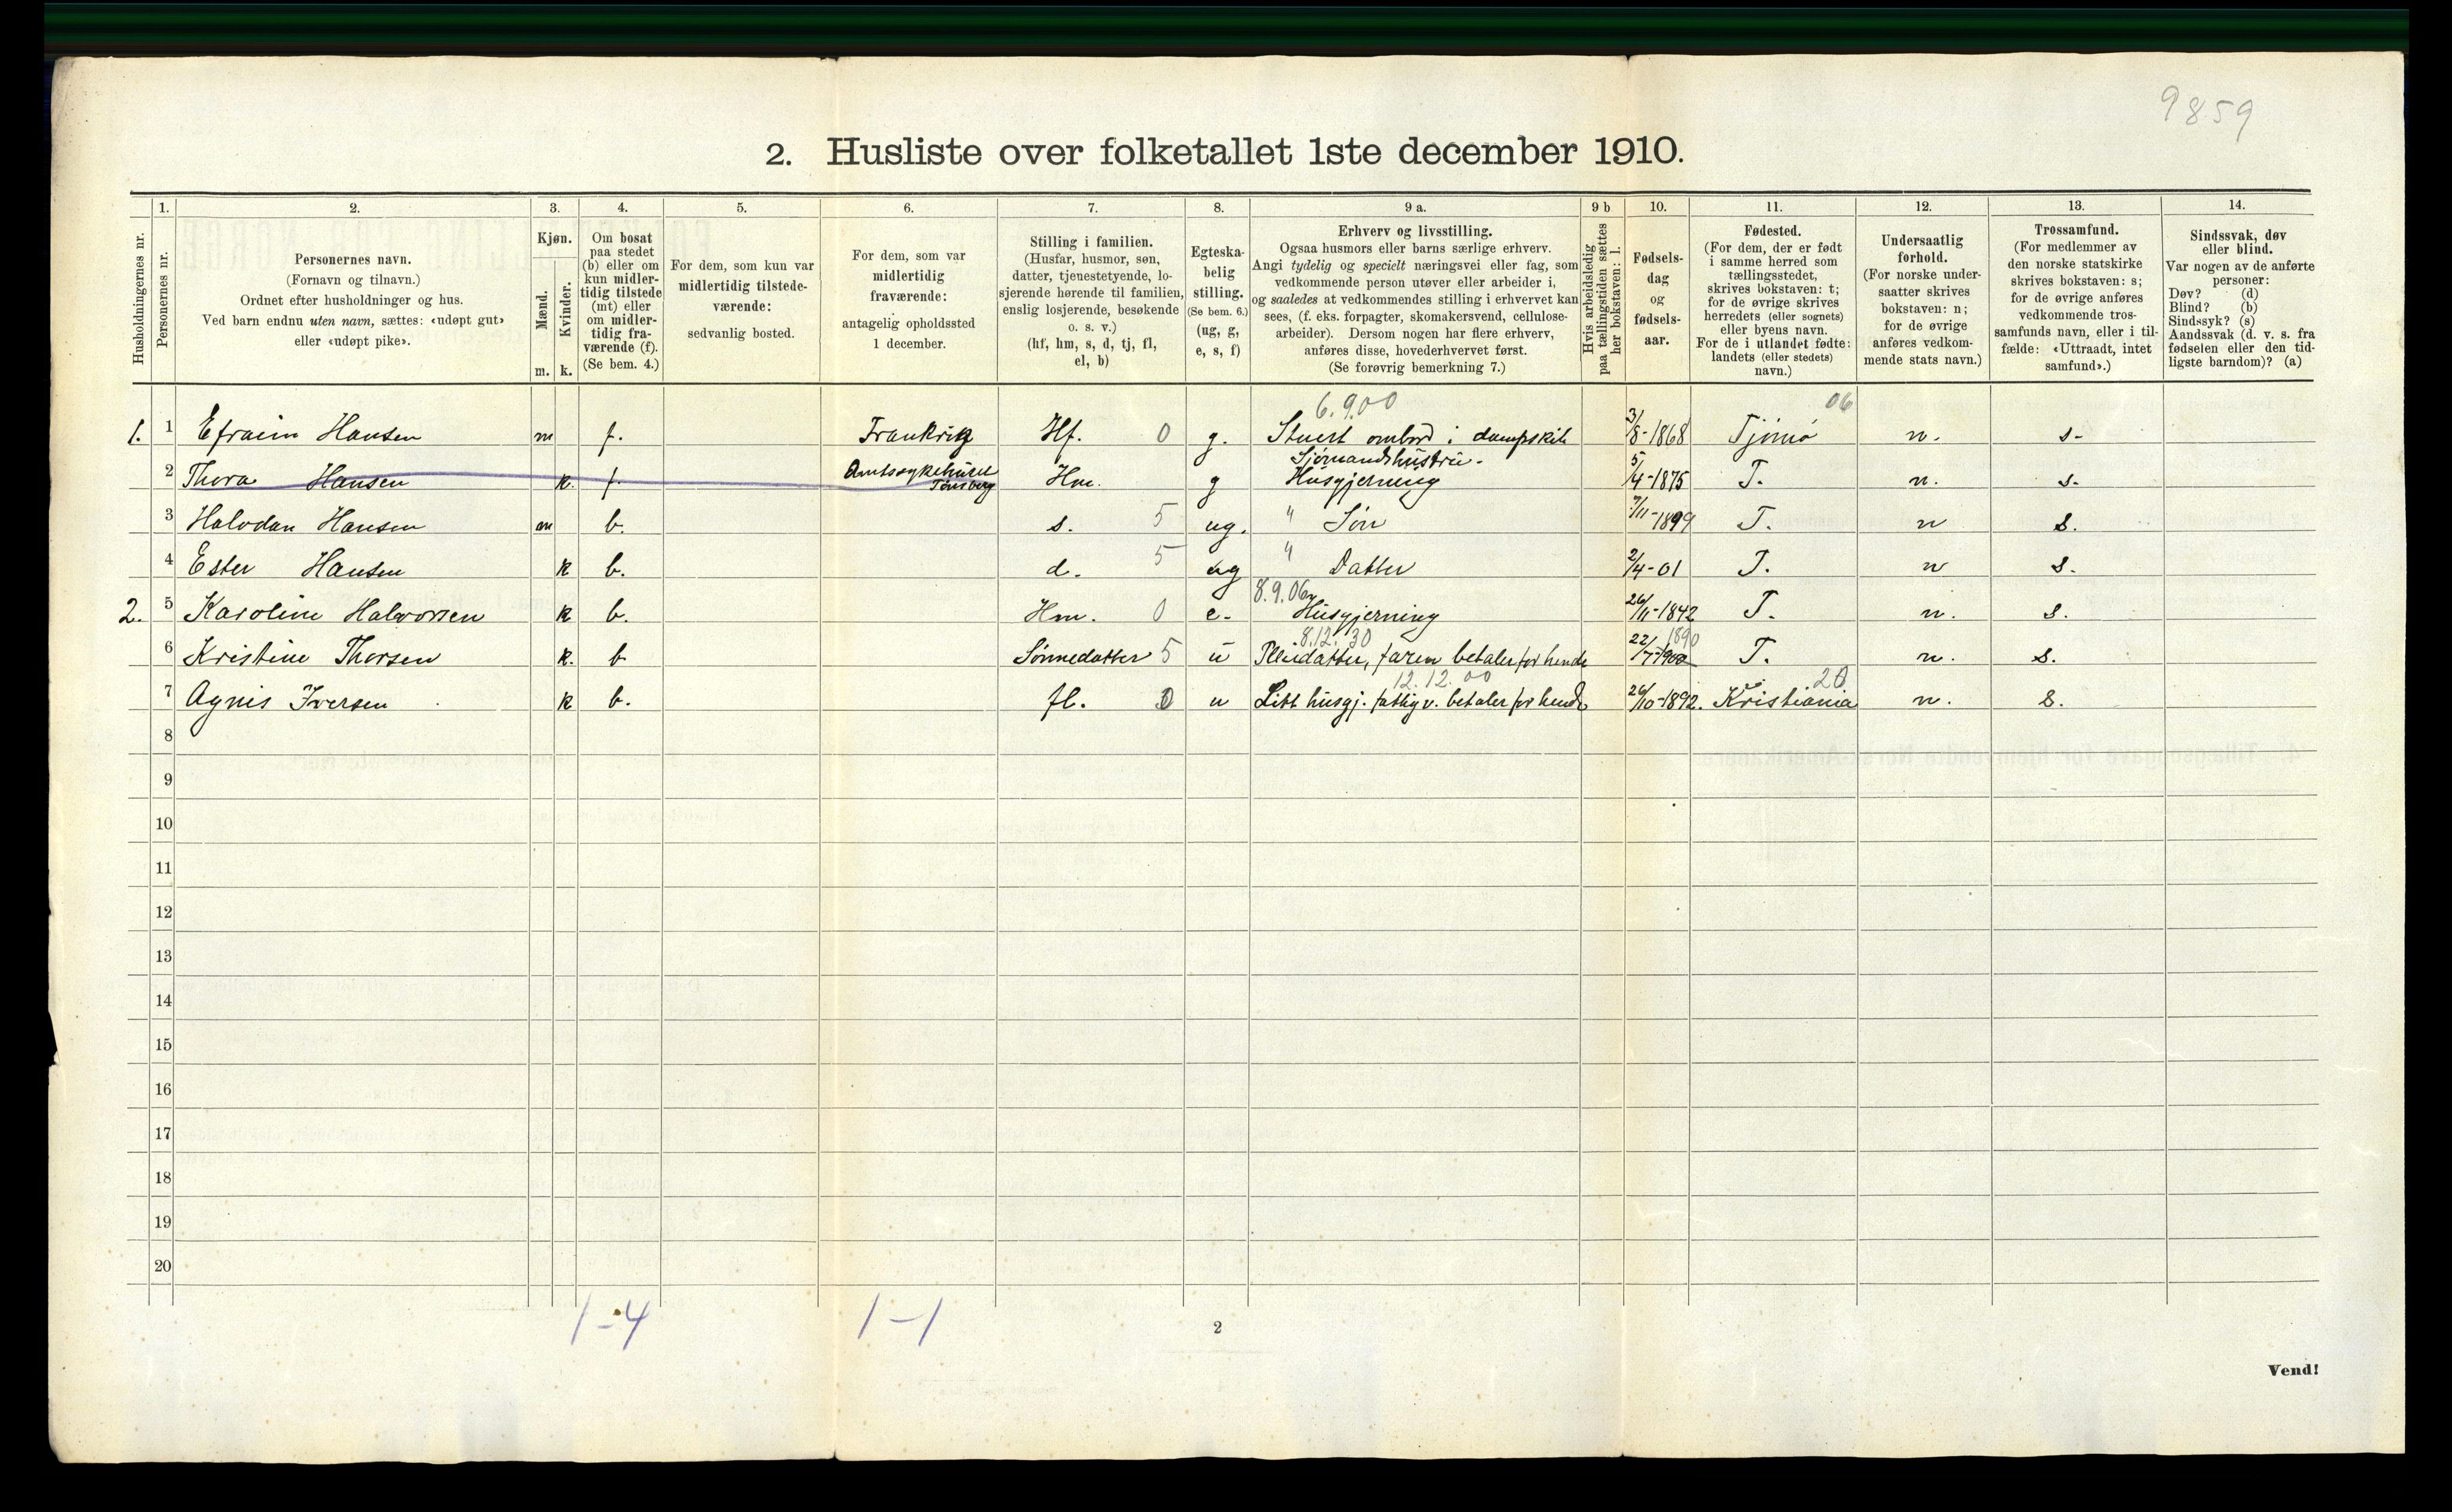 9859
2. Husliste over folketallet 1ste december 1910.
Husholdningernes nr.
1. Personernes nr.
2. Personernes navn.
(Fornavn og tilnavn.)
Ordnet efter husholdninger og hus.
Ved barn endnu uten navn, sættes: «udøpt gut»
eller «udøpt pike».
3. Kjøn.
Mænd. m.
Kvinder. k.
4. Om bosat
paa stedet
(b) eller om
kun midler-
tidig tilstede
(mt) eller
om midler-
tidig fra-
værende (f).
(Se bem. 4.)
5. For dem, som kun var
midlertidig tilstede-
værende:
sedvanlig bosted.
6. For dem, som var
midlertidig
fraværende:
antagelig opholdssted
1 december.
7. Stilling i familien.
(Husfar, husmor, søn,
datter, tjenestetyende, lo-
sjerende hørende til familien,
enslig losjerende, besøkende
o. s. v.)
(hf, hm, s, d, tj, fl,
el, b)
8. Egteska-
belig
stilling.
(Se bem. 6.)
(ug, g,
e, s, f)
9 a. Erhverv og livsstilling.
Ogsaa husmors eller barns særlige erhverv.
Angi tydelig og specielt næringsvei eller fag, som
vedkommende person utøver eller arbeider i,
og saaledes at vedkommendes stilling i erhvervet kan
sees, (f. eks. forpagter, skomakersvend, cellulose-
arbeider). Dersom nogen har flere erhverv,
anføres disse, hovederhvervet først.
(Se forøvrig bemerkning 7.)
9 b Hvis arbeidsledig
paa tællingstiden sættes
her bokstaven: l.
10. Fødsels-
dag
og
fødsels-
aar.
11. Fødested.
(For dem, der er født
i samme herred som
tællingsstedet,
skrives bokstaven: t;
for de øvrige skrives
herredets (eller sognets)
eller byens navn.
For de i utlandet fødte:
landets (eller stedets)
navn.)
12. Undersaatlig
forhold.
(For norske under-
saatter skrives
bokstaven: n;
for de øvrige
anføres vedkom-
mende stats navn.)
13. Trossamfund.
(For medlemmer av
den norske statskirke
skrives bokstaven: s;
for de øvrige anføres
vedkommende tros-
samfunds navn, eller i til-
fælde: «Uttraadt, intet
samfund».)
14. Sindssvak, døv
eller blind.
Var nogen av de anførte
personer:
Døv? (d)
Blind? (b)
Sindssyk? (s)
Aandssvak (d. v. s. fra
fødselen eller den tid-
ligste barndom)? (a)
6.9.00 06
1. 1 Efraim Hansen m f. Frankrig Hf. 0 g. Stuert ombord i dampskib 3/8-1868 Tjømø n. s.
2 Thora Hansen k. f. Amtssykehuset Tønsberg Hm. g Sjømandshustru. Husgjerning 5/4-1875 T. n. s.
3 Halvdan Hansen m b. s. 5 ug. " Søn 7/11-1899 T. n s.
4 Ester Hansen k b. d. 5 ug " Datter 2/4-01 T. n s.
8.9.06
2. 5 Karoline Halvorsen k b. Hm. 0 e. Husgjerning 26/11-1842 T. n. s.
8.12.30 1890
6 Kristine Thorsen k. b Sønnedatter 5 u Pleiedatter, faren betaler for hende 22/7-1900 T. n. s.
12.12.00 20
7 Agnis Iversen k b. fl. 0 u Litt husgj. fattigv. betaler for hende 26/10-1892. Kristiania n. s.
8
9
10
11
12
13
14
15
16
17
18
19
20
1-4 1-1
2
Vend!